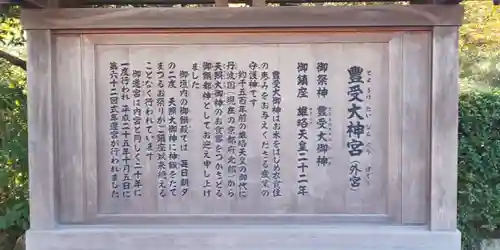 豊受大神宮(外宮)
とようけだいじんぐう げくう
御祭神 豊受大御神
御鎮座 雄略天皇二十二年
豊受大御神はお米をはじめ衣食住
の恵みをお与えくださる産業の
守護神です
約千五百年前の雄略天皇の御代に
丹波国(現在の京都府北部)から
天照大御神のお食事をつかさどる
御饌都神としてお迎え申し上げ
ました
御垣内の御饌殿では 毎日朝夕
の二度 天照大御神に神饌をたて
まつるお祭りがご鎮座以来絶える
ことなく行われています
御遷宮は内宮と同じく二十年に
一度行われ 平成二十五年十月五日に
第六十二回式年遷宮が行われました